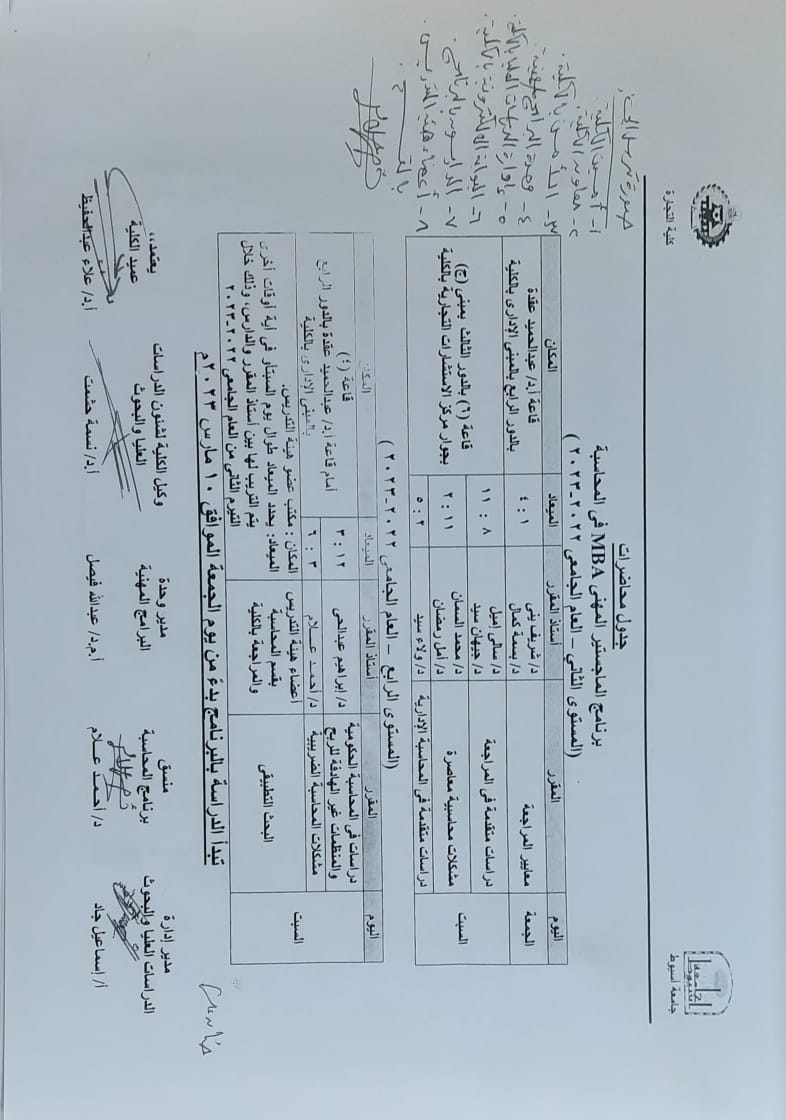 جامعة أسيوط
كلية التجارة
جدول محاضرات
برنامج الماجستير المهني MBA في المحاسبة
(المستوى الثاني – العام الجامعي ٢٠٢٢-٢٠٢٣)
اليوم المقرر أستاذ المقرر الميعاد المكان
الجمعة معايير المراجعة د/ شريف يني د/ بسمة كمال ٤ : ١ قاعة أ.د/ عبدالحميد عقدة بالدور الرابع بالمبنى الإدارى بالكلية
السبت دراسات متقدمة فى المراجعة د/ سالى إميل د/ جيهان سيد ١١ : ٨ قاعة (٦) بالدور الثالث بمبنى (ج) بجوار مركز الاستشارات التجارية بالكلية
مشكلات محاسبية معاصرة د/ محمد السمان د/ أمل رمضان ٢ : ١١
دراسات متقدمة فى المحاسبة الإدارية د/ ولاء سيد ٥ : ٢
(المستوى الرابع – العام الجامعى ٢٠٢٢-٢٠٢٣)
اليوم المقرر أستاذ المقرر الميعاد المكان
السبت دراسات فى المحاسبة الحكومية والمنظمات غير الهادفة للربح د/ إبراهيم عبدالحى ٣ : ١٢ قاعة (٤) أمام قاعة أ.د/ عبدالحميد عقدة بالدور الرابع بالمبنى الإدارى بالكلية
مشكلات المحاسبة الضريبية د/ أحمد عـــلام ٦ : ٣
البحث التطبيقى أعضاء هيئة التدريس بقسم المحاسبة والمراجعة بالكلية
المكان : مكتب عضو هيئة التدريس.
الميعاد: يحدد الميعاد طوال يوم السبت أو فى أية أوقات أخرى
يتم الترتيب لها بين أستاذ المقرر والدارس، وذلك خلال
التيرم الثانى من العام الجامعى ٢٠٢٢-٢٠٢٣
تبدأ الدراسة بالبرنامج بدءً من يوم الجمعة الموافق ١٠ مارس ٢٠٢٣م
مدير إدارة الدراسات العليا والبحوث
أ/ إسماعيل جاد
منسق برنامج المحاسبة
د/ أحمد عـــلام
مدير وحدة البرامج المهنية
أ.م.د/ عبدالله فيصل
وكيل الكلية لشئون الدراسات العليا والبحوث
أ.د/ نسمة حشمت
يعتمد،،
عميد الكلية
أ.د/ علاء عبدالحفيظ
صورة ترسل إلى:
١- أمين الكلية
٣- الأمن بالكلية
٤- وحدة البرامج المهنية
٥- إدارة الدراسات العليا بالكلية
٦- البوابة الالكترونية بالكلية
٧- الدارسون بالبرنامج
٨- أعضاء هيئة التدريس